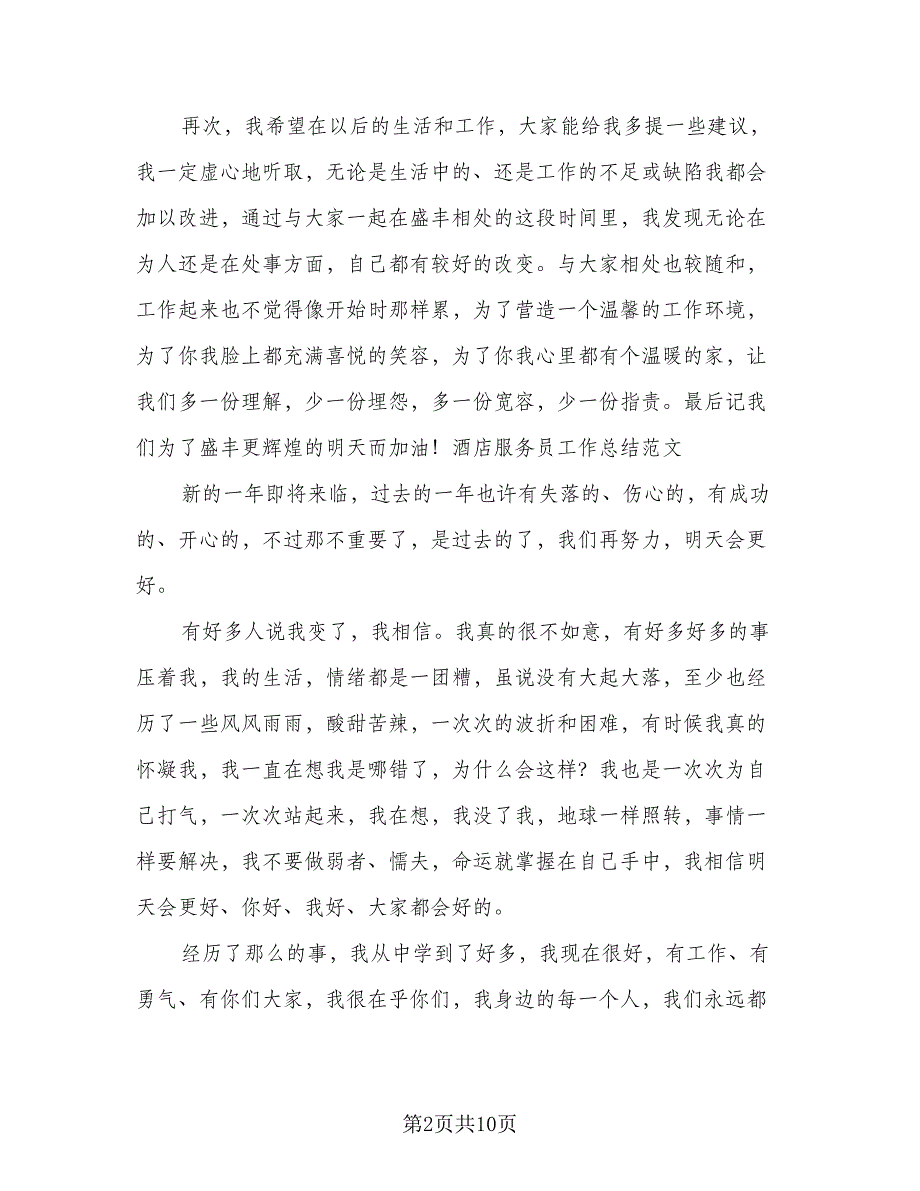 再次，我希望在以后的生活和工作，大家能给我多提一些建议，
我一定虚心地听取，无论是生活中的、还是工作的不足或缺陷我都会
加以改进，通过与大家一起在盛丰相处的这段时间里，我发现无论在
为人还是在处事方面，自己都有较好的改变。与大家相处也较随和，
工作起来也不觉得像开始时那样累，为了营造一个温馨的工作环境，
为了你我脸上都充满喜悦的笑容，为了你我心里都有个温暖的家，让
我们多一份理解，少一份埋怨，多一份宽容，少一份指责。最后记我
们为了盛丰更辉煌的明天而加油！酒店服务员工作总结范文
新的一年即将来临，过去的一年也许有失落的、伤心的，有成功
的、开心的，不过那不重要了，是过去的了，我们再努力，明天会更
好。
有好多人说我变了，我相信。我真的很不如意，有好多好多的事
压着我，我的生活，情绪都是一团糟，虽说没有大起大落，至少也经
历了一些风风雨雨，酸甜苦辣，一次次的波折和困难，有时候我真的
怀凝我，我一直在想我是哪错了，为什么会这样？我也是一次次为自
己打气，一次次站起来，我在想，我没了我，地球一样照转，事情一
样要解决，我不要做弱者、懦夫，命运就掌握在自己手中，我相信明
天会更好、你好、我好、大家都会好的。
经历了那么的事，我从中学到了好多，我现在很好，有工作、有
勇气、有你们大家，我很在乎你们，我身边的每一个人，我们永远都
第2页共10页